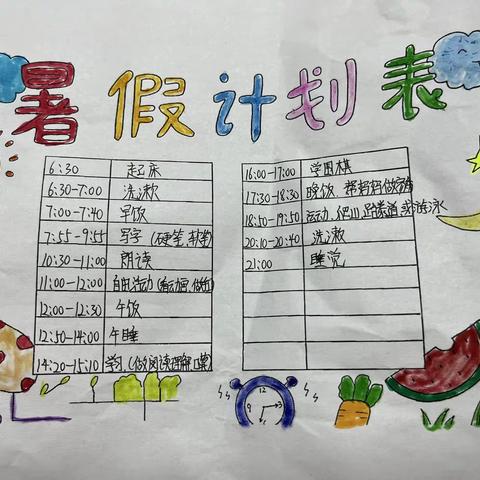 暑假计划表
6:30 起床
6:30-7:00 洗漱
7:00-7:40 早饭
7:55-9:55 写字(硬笔,软笔)
10:30-11:00 朗读
11:00-12:00 自由活动(看动画,做
12:00-12:30 午饭
12:50-14:00 午睡
14:20-15:10 学习(做阅读理解,口算)
16:00-17:00 学围棋
17:30-18:30 晚饭 帮妈妈做
18:50-19:50 运动 爬山 跆拳道 或游泳
20:10-20:40 洗漱
21:00 睡觉
12
3